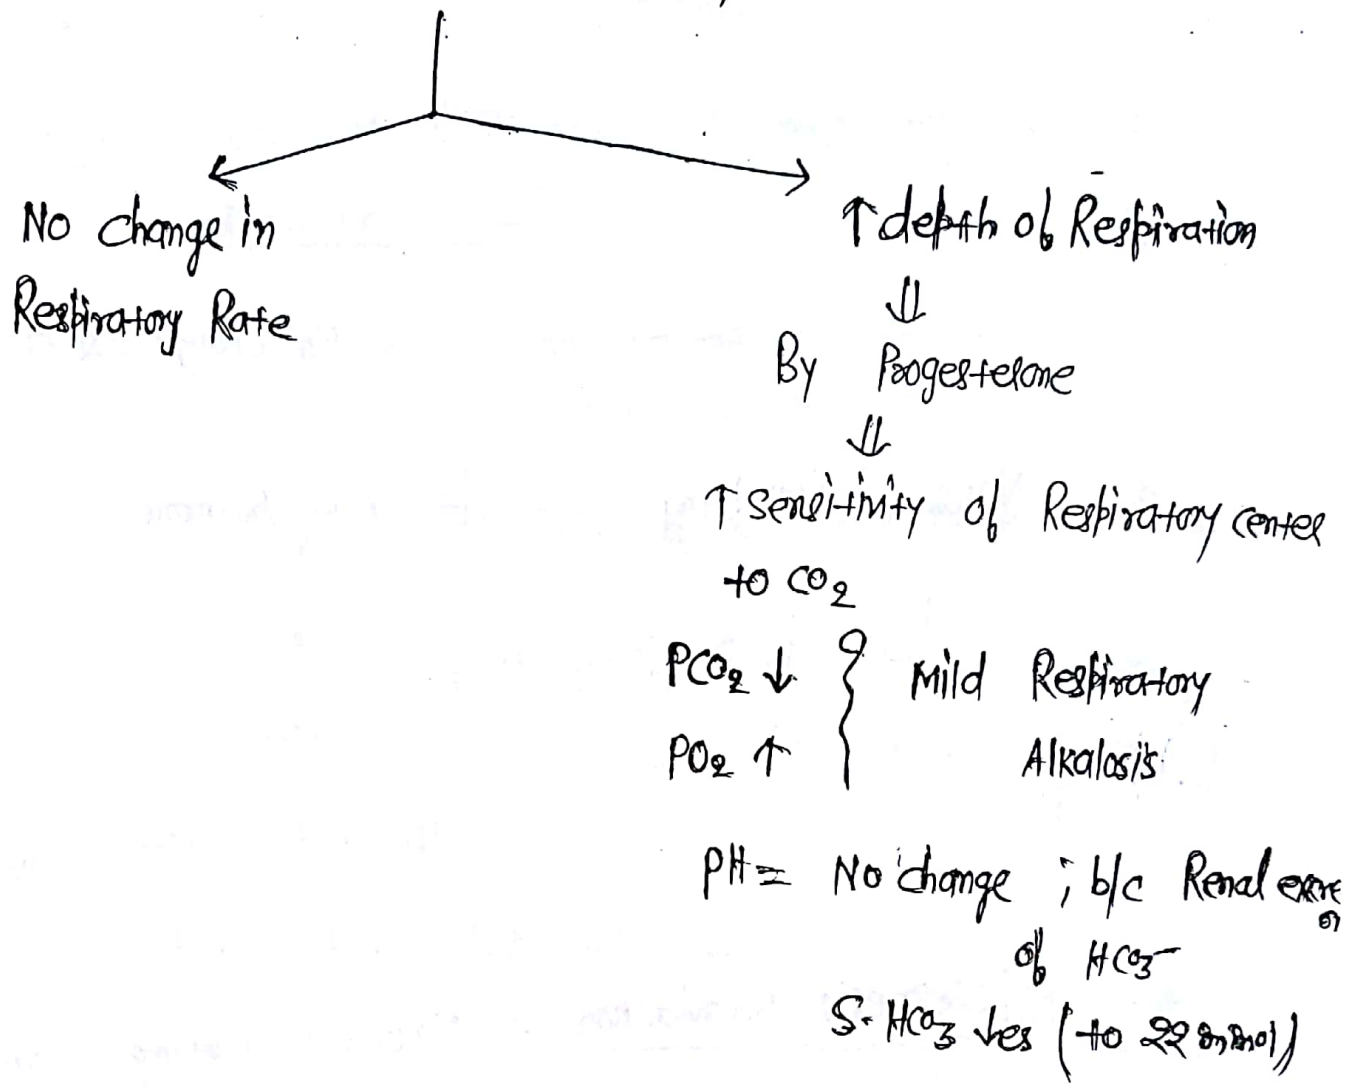 No change in
Respiratory Rate
↑ depth of Respiration
⇓
By Progesterone
⇓
↑ sensitivity of Respiratory center
to CO2
PCO2 ↓
PO2 ↑
Mild Respiratory
Alkalosis
PH = No change ; b/c Renal excre
on
of HCO3-
S. HCO3 ↓es (to 22 mmol)